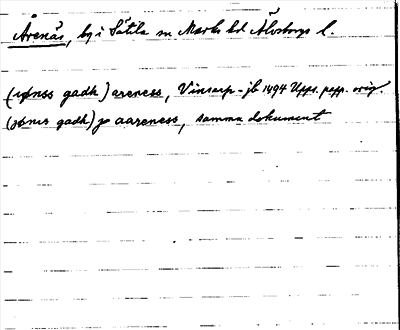 Årenäs, by i Sätila sn Marks hd Älvsborgs l.
(jønss gadh) areness, Vinsarp-jb 1494 Upps. papp. orig.
(jønis gadh) jo aareness, samma dokument